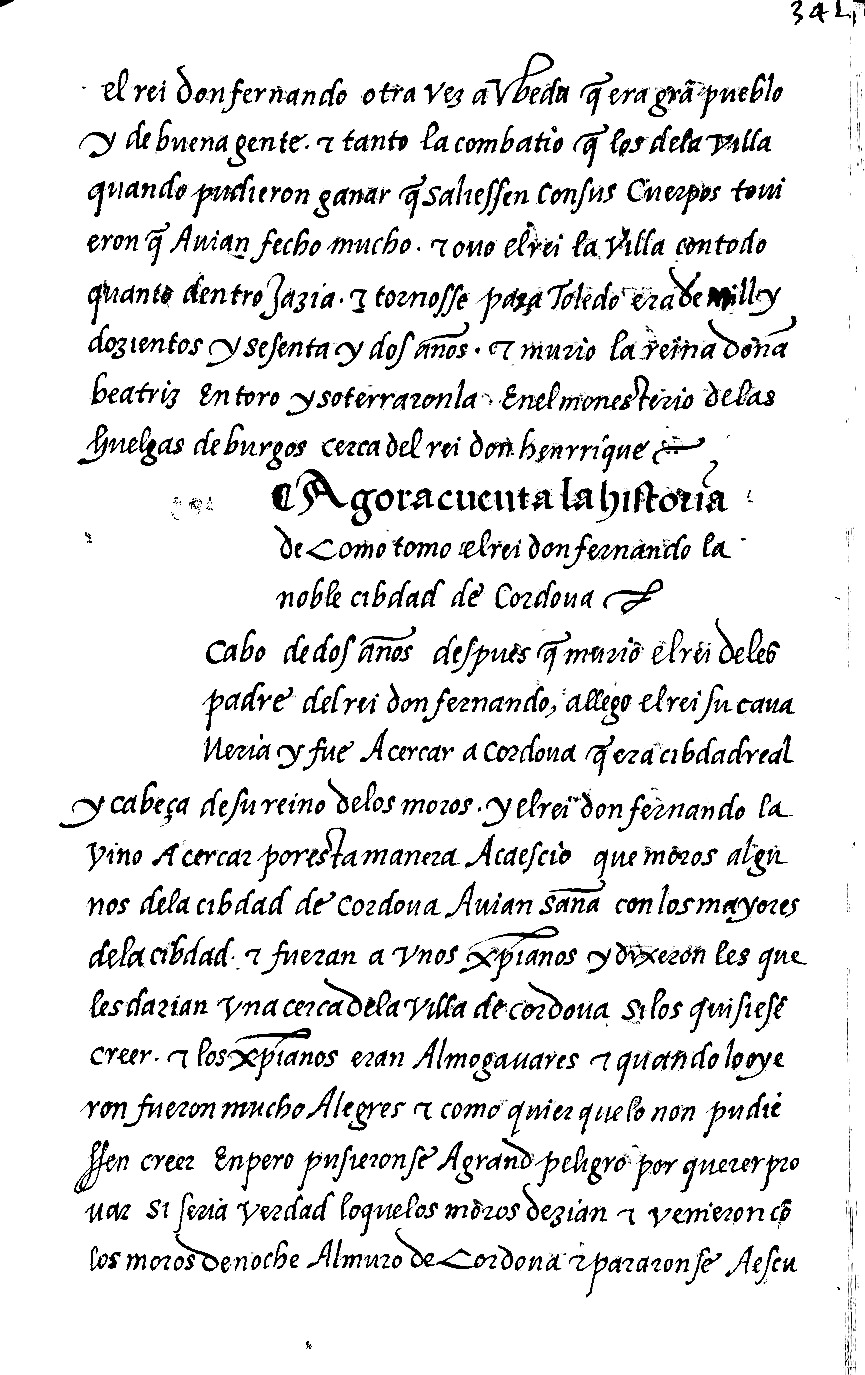 341
el rei don fernando otra vez a Vbeda q̃ era grã pueblo
y de buena gente. ⁊ tanto la combatio q̃ los dela villa
quando pudieron ganar q̃ saliessen con sus cuerpos toui
eron q̃ Auian fecho mucho. ⁊ ouo el rei la villa con todo
quanto dentro Jazia. ⁊ tornosse para Toledo era de mill y
dozientos y sesenta y dos años. ⁊ murio la reina doña
beatriz En toro y soterraronla Enel monesterio de las
Huelgas de burgos cerca del rei don henrrique
¶ Agora cuenta la historia
de Como tomo el rei don fernando la
noble cibdad de Cordoua
Cabo de dos años despues q̃ murio el rei de leõ
padre del rei don fernando, allego el rei su caua
lleria y fue A cercar a Cordoua q̃ era cibdad real
y cabeça de su reino de los moros. y el rei don fernando la
vino A cercar por esta manera Acaescio que moros algu
nos dela cibdad de Cordoua Auian saña con los mayores
de la cibdad. ⁊ fueran a Vnos xp̃ianos y dixeron les que
les darian Vna cerca de la villa de cordoua si los quisiesẽ
creer. ⁊ los xp̃ianos eran Almogauares ⁊ quando lo oye
ron fueron mucho Alegres ⁊ como quier que lo non pudie
ssen creer Enpero pusieronse A grand peligro por querer pro
uar si seria verdad lo que los moros dezian ⁊ venieron cõ
los moros de noche Al muro de Cordoua ⁊ pararonse A escu